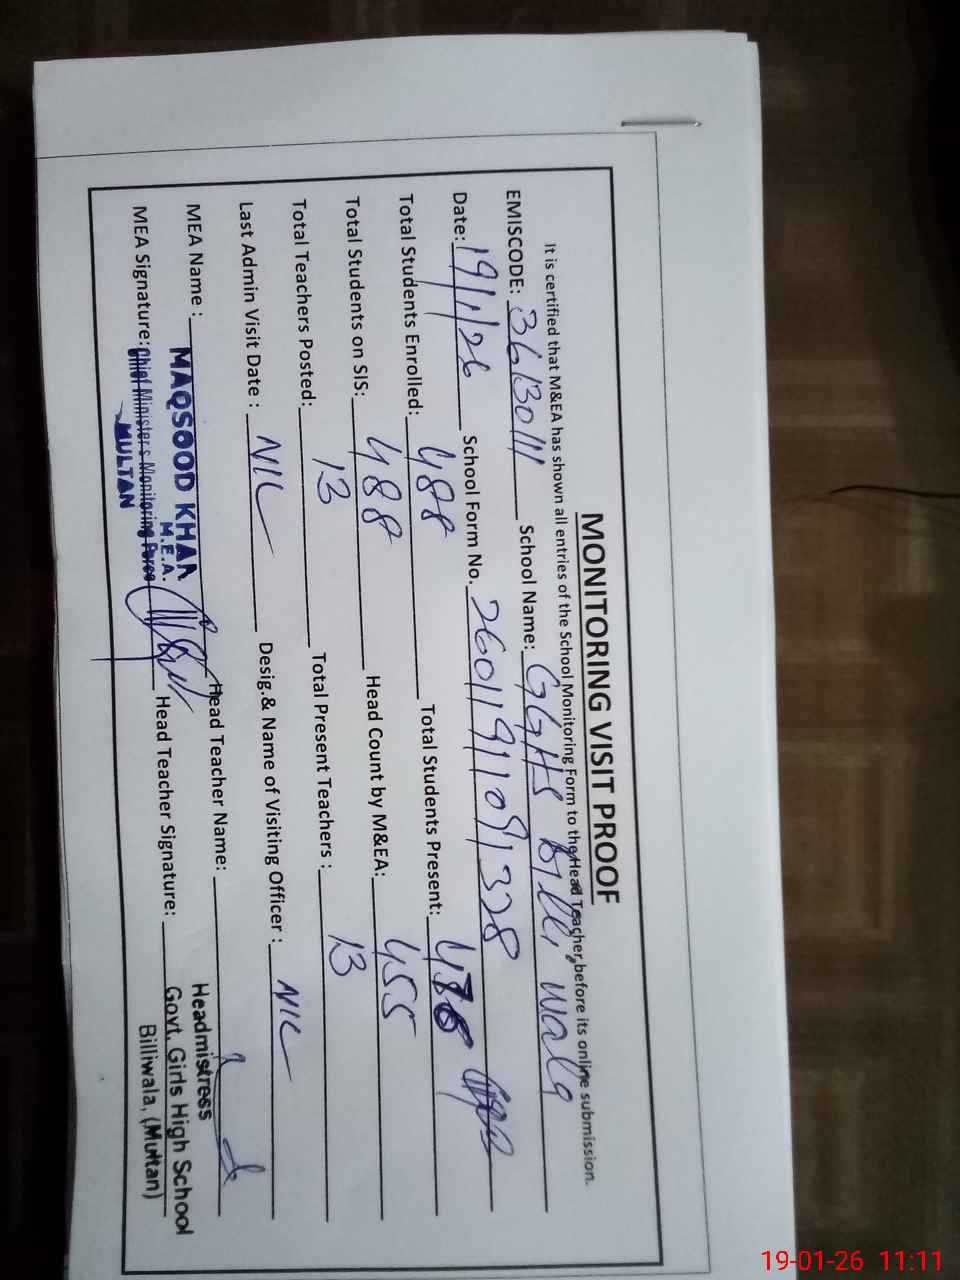 MONITORING VISIT PROOF
It is certified that M&EA has shown all entries of the School Monitoring Form to the Head Teacher, before its online submission.
EMISCODE: 36130111 School Name: GGHS Billi wala
Date: 19/1/26 School Form No. 2601191091328
Total Students Enrolled: 488 Total Students Present:
Total Students on SIS: 488 Head Count by M&EA: 455
Total Teachers Posted: 13 Total Present Teachers : 13
Last Admin Visit Date : NIL Desig.& Name of Visiting Officer : NIL
MEA Name : MAQSOOD KHAN Head Teacher Name:
M.E.A.
MEA Signature: Chief Minister's Monitoring Force Head Teacher Signature:
MULTAN
Headmistress
Govt. Girls High School
Billiwala, (Multan)
19-01-26 11:11